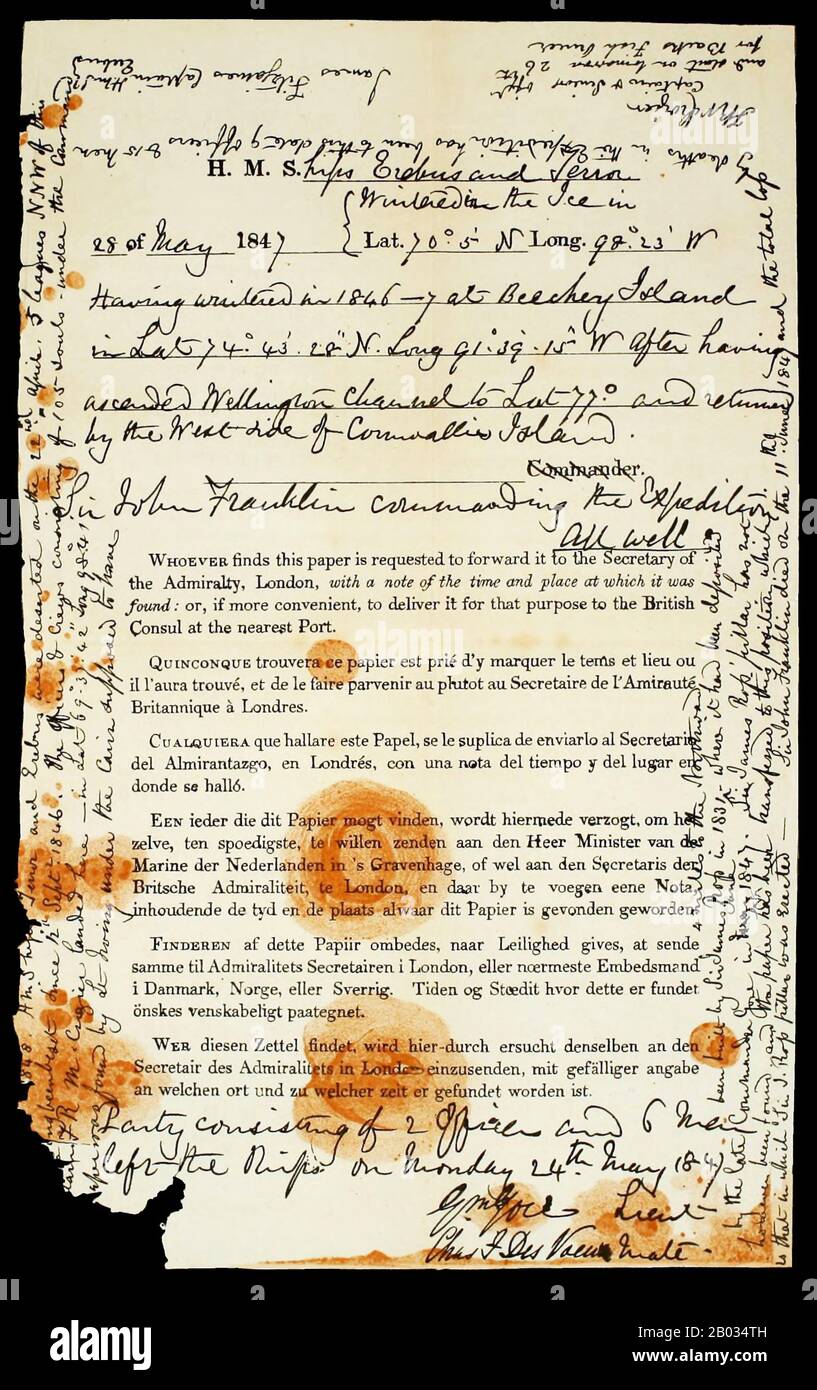 H. M. S.hips Erebus and Terror
Wintered in the Ice in
28 of May 1847 Lat. 70° 5' N Long. 98° 23' W
Having wintered in 1846–7 at Beechey Island
in Lat 74° 43' 28" N. Long 91° 39' 15" W After having
ascended Wellington Channel to Lat 77° and returned
by the West side of Cornwallis Island.
Commander.
Sir John Franklin commanding the Expedition
All well
WHOEVER finds this paper is requested to forward it to the Secretary of
the Admiralty, London, with a note of the time and place at which it was
found: or, if more convenient, to deliver it for that purpose to the British
Consul at the nearest Port.
QUINCONQUE trouvera ce papier est prié d'y marquer le tems et lieu ou
il l'aura trouvé, et de le faire parvenir au plutot au Secretaire de l'Amirauté
Britannique à Londres.
CUALQUIERA que hallare este Papel, se le suplica de enviarlo al Secretario
del Almirantazgo, en Londrés, con una nota del tiempo y del lugar en
donde se halló.
EEN ieder die dit Papier mogt vinden, wordt hiermede verzogt, om het
zelve, ten spoedigste, te willen zenden aan den Heer Minister van de
Marine der Nederlanden in 's Gravenhage, of wel aan den Secretaris der
Britsche Admiraliteit, te London, en daar by te voegen eene Nota,
inhoudende de tyd en de plaats alwaar dit Papier is gevonden geworden
FINDEREN af dette Papiir ombedes, naar Leilighed gives, at sende
samme til Admiralitets Secretairen i London, eller nœrmeste Embedsmand
i Danmark, Norge, eller Sverrig. Tiden og Stœdit hvor dette er fundet
önskes venskabeligt paategnet.
WER diesen Zettel findet, wird hier-durch ersucht denselben an den
Secretair des Admiralitets in London einzusenden, mit gefälliger angabe
an welchen ort und zu welcher zeit er gefundet worden ist.
Party consisting of 2 Officers and 6 Men
left the Ships on Monday 24th May 1847
Gm Gore Lieut
Chas F Des Voeux Mate.
1848 HMShips Terror and Erebus were deserted on the 22nd April. 5 leagues NNW of this
since 12th Septr 1846. The Officers & Crews consisting of 105 souls under the command
F.R.M. Crozier landed here – in Lat 69° 37' 42" Long 98° 41'
paper was found by Lt Irving under the Cairn supposed to have
been built by Sir James Ross in 1831 where it had been deposited
4 miles to the Northward
by the late Commander Gore in June 1847. Sir James Ross' pillar has not
however been found and the paper has been transferred to this position which
is that in which Sir J. Ross pillar was erected – Sir John Franklin died on the 11th June 1847 and the total loss
by deaths in the Expedition has been to this date 9 Officers & 15 Men
James Fitzjames Captain HMS Erebus
Crozier
Captain & Senior Offr
and start on tomorrow 26th
for Backs Fish River
alamy
Image ID: 2B034TH
www.alamy.com